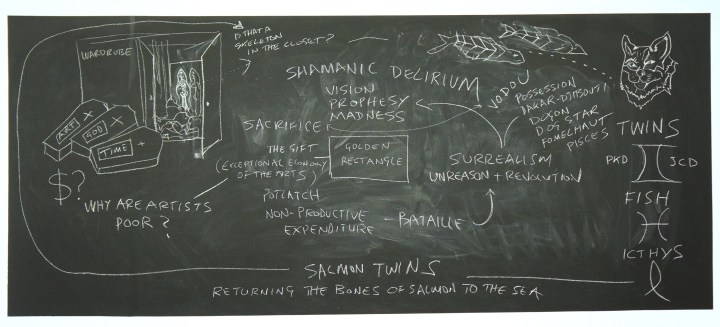 IS THAT A
SKELETON
IN THE CLOSET?
WARDROBE
ART X
GOD X
TIME +
$?
WHY ARE ARTISTS
POOR?
SHAMANIC DELIRIUM
VISION
PROPHESY
MADNESS
SACRIFICE
THE GIFT
(EXCEPTIONAL ECONOMY
OF THE ARTS)
GOLDEN
RECTANGLE
POTLATCH
NON-PRODUCTIVE
EXPENDITURE
- BATAILLE
SURREALISM
UNREASON + REVOLUTION
VODOU
POSSESSION
DAKAR-DJIBOUTI
DOGON
DOG STAR
FOMELHAUT
PISCES
TWINS
PKD JCD
FISH
ICTHYS
SALMON TWINS
RETURNING THE BONES OF SALMON TO THE SEA